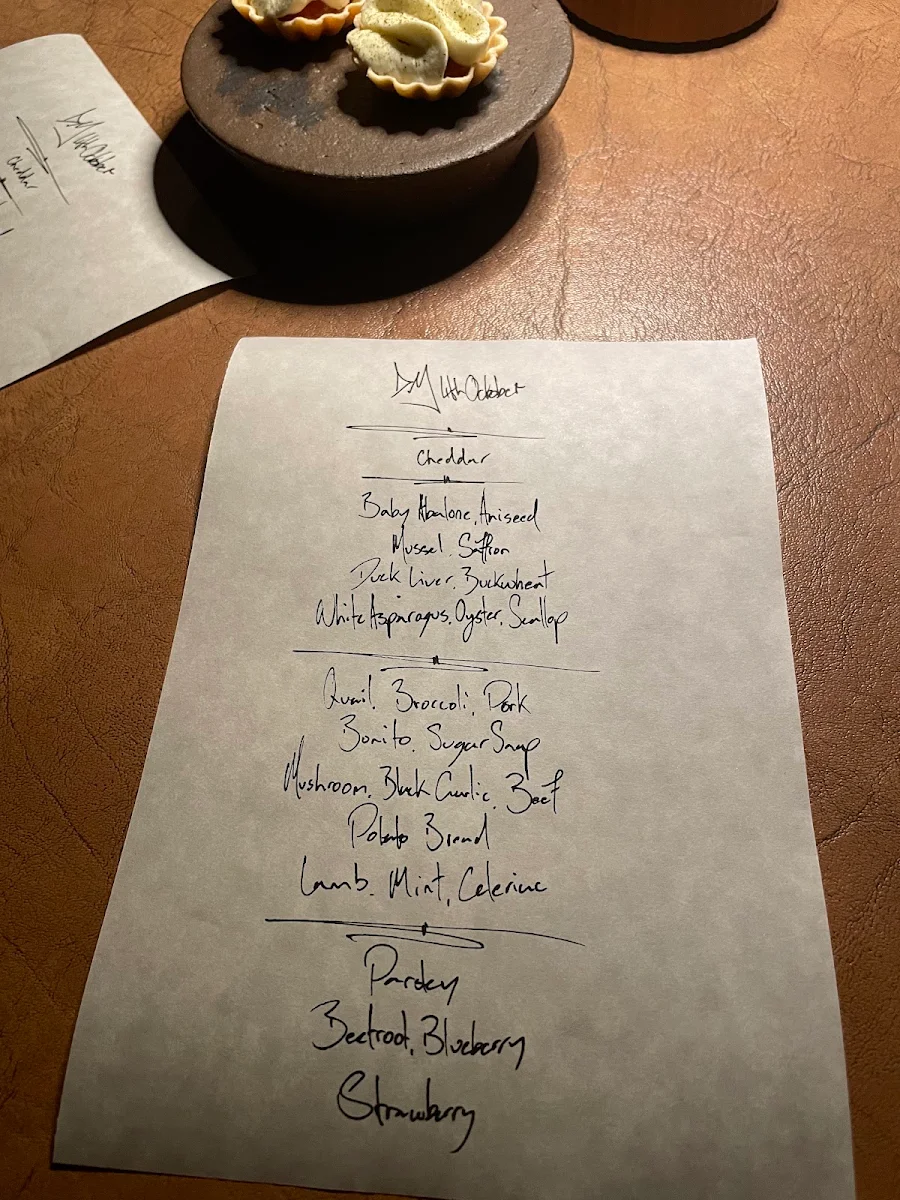 DM 4th October
Cheddar
DM 4th October
Cheddar
Baby Abalone, Aniseed
Mussel, Saffron
Duck Liver, Buckwheat
White Asparagus, Oyster, Scallop
Quail, Broccoli, Pork
Bonito, Sugar Snap
Mushroom, Black Garlic, Beef
Potato Bread
Lamb, Mint, Celeriac
Parsley
Beetroot, Blueberry
Strawberry